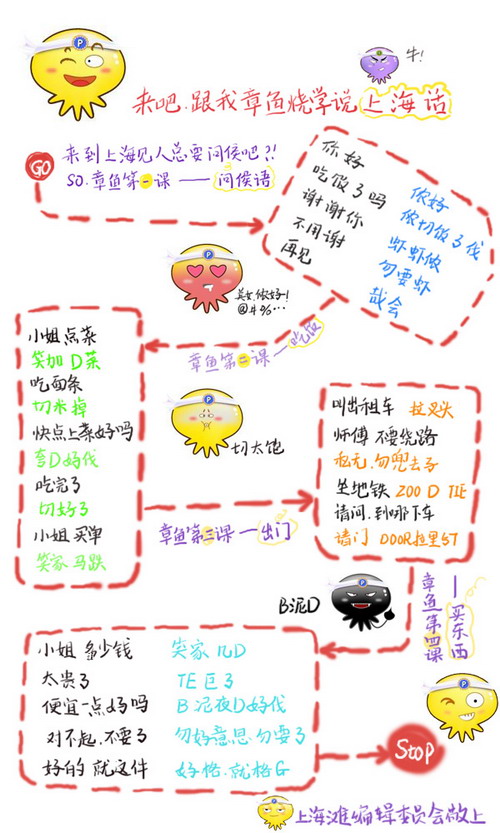 牛!
来吧.跟我章鱼烧学说上海话
GO
来到上海见人总要问候吧?!
SO.章鱼第一课——问侯语
你好
侬好
吃饭了吗
侬切饭了伐
谢谢你
虾虾侬
不用谢
勿要虾
再见
哉会
美女,侬好!
@#%…
章鱼第二课—吃饭
小姐点菜
笑加D菜
吃面条
切米掉
快点上菜好吗
夸D好伐
吃完了
切好了
小姐买单
笑家马跌
切太饱
章鱼第三课—出门
叫出租车 拉叉头
师傅不要绕路
私元.勿兜去子
坐地铁 ZOO D TIE
请问.到哪下车
请门 DOOR拉里5T
B泥D
章鱼第四课
—买东西
小姐多少钱 笑家几D
太贵了 TE巨了
便宜一点好吗 B泥夜D好伐
对不起.不要了 勿好意思.勿要了
好的就这件 好格.就格G
Stop
上海滩编辑委员会敬上